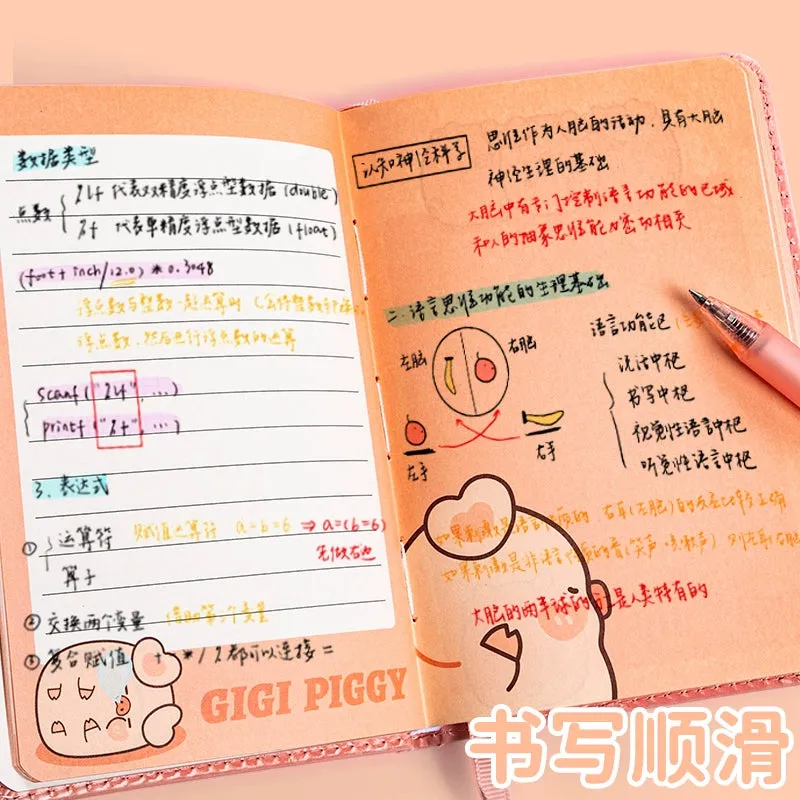 数据类型
点数
%lf 代表双精度浮点型数据(double)
%f 代表单精度浮点型数据(float)
(foot+inch/12.0)*0.3048
浮点数与整数一起运算时
浮点数,然后进行浮点数的运算
scanf("%lf", ...)
printf("%f", ...)
3. 表达式
① 运算符 赋值运算符 a=b=6 ⇒ a=(b=6)
先做右边
算子
② 交换两个变量 借助第三个变量
③ 复合赋值 + - * / % 都可以连接 =
GIGI PIGGY
认知神经科学
思维作为人脑的活动,具有大脑
神经生理的基础
大脑中有专门控制语言功能的区域
和人的抽象思维能力密切相关
二、语言思维功能的生理基础
左脑
右脑
左手
右手
语言功能区
说话中枢
书写中枢
视觉性语言中枢
听觉性语言中枢
如果刺激是语言性质的 右耳(左脑)的
如果刺激是非语言性质的音(笑声
大脑的两半球的
是人类特有的
书写顺滑